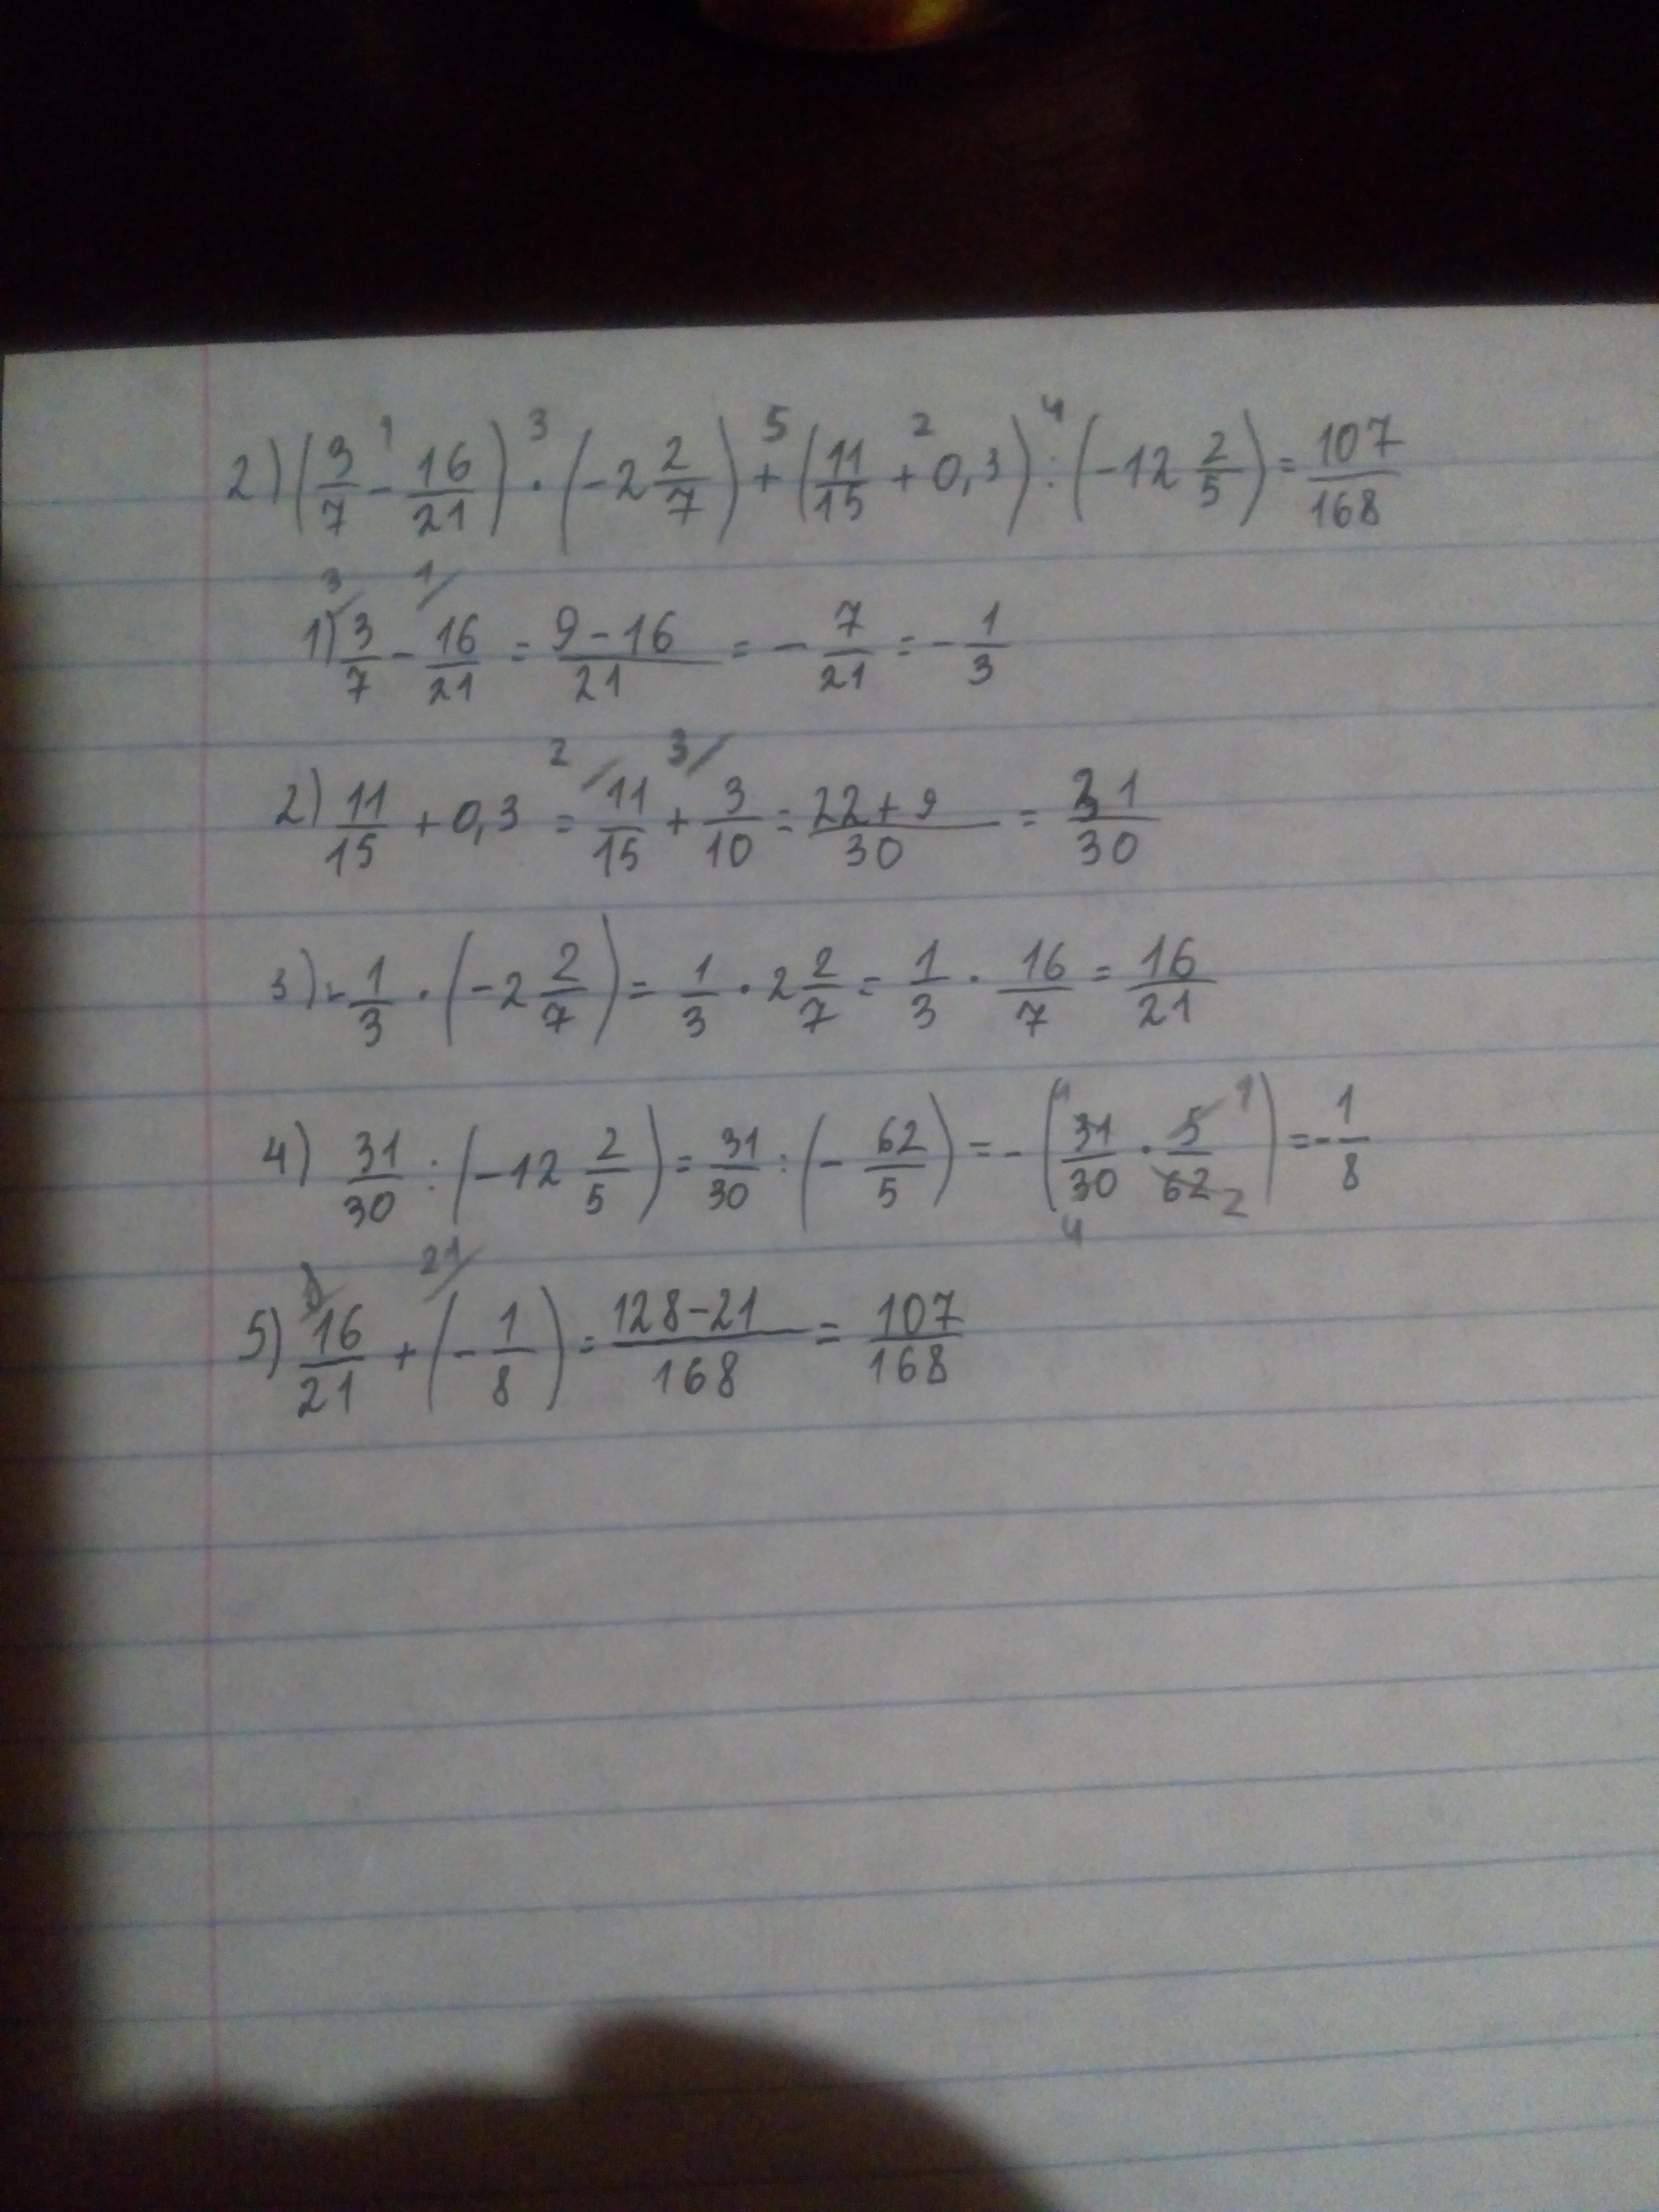 2) (3/7 - 16/21) · (-2 2/7) + (11/15 + 0,3) : (-12 2/5) = 107/168
1) 3/7 - 16/21 = 9-16/21 = - 7/21 = - 1/3
2) 11/15 + 0,3 = 11/15 + 3/10 = 22+9/30 = 31/30
3) - 1/3 · (-2 2/7) = 1/3 · 2 2/7 = 1/3 · 16/7 = 16/21
4) 31/30 : (-12 2/5) = 31/30 : (- 62/5) = - (31/30 · 5/62) = - 1/8
5) 16/21 + (- 1/8) = 128-21/168 = 107/168